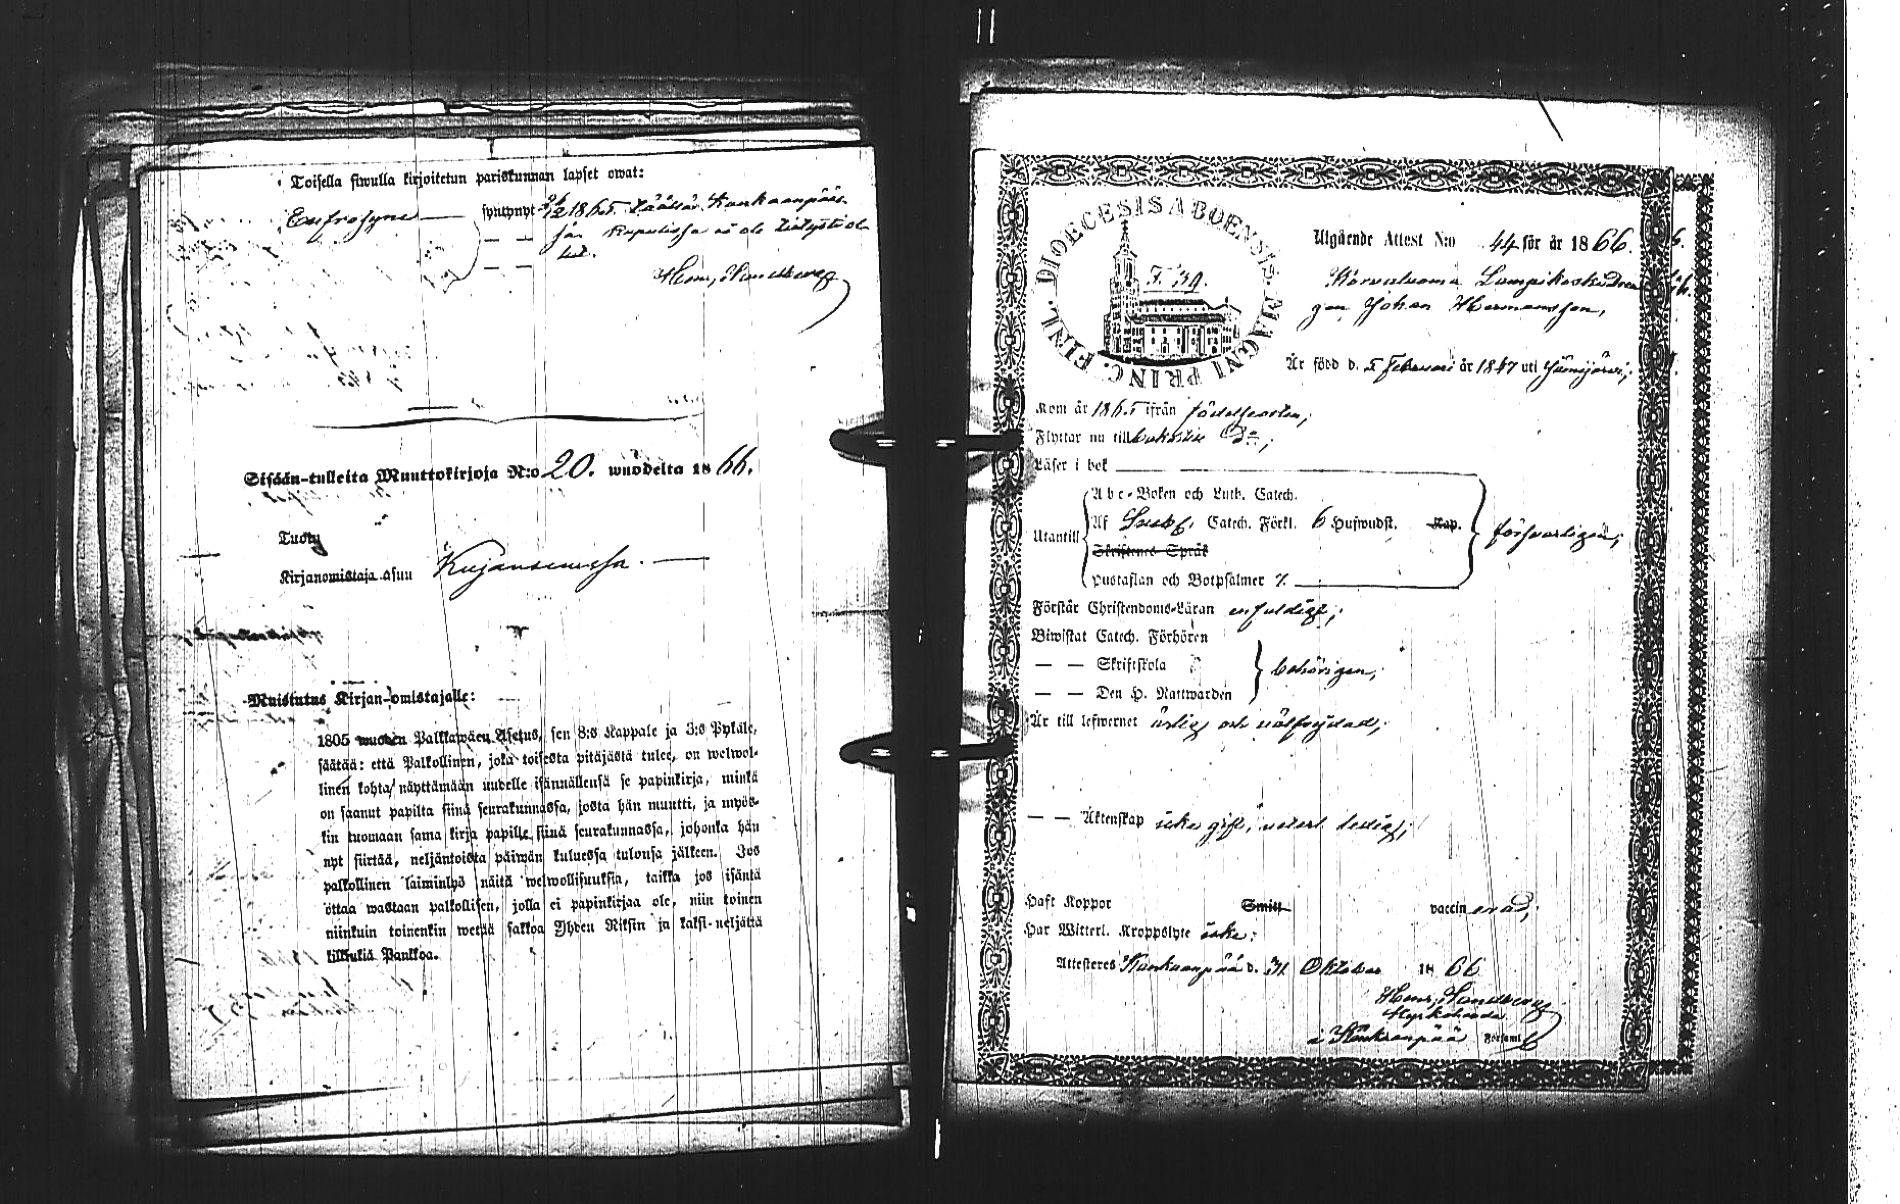 Toisella siwulla kirjoitetun pariskunnan lapset owat:
Eufrosyne — syntynyt 26/12 1865. Täällä Kankaanpään
— —
— —
Henr. Sandberg
Sisään-tulleita Muuttokirjoja N:o 20. wuodelta 1866.
Tuotu
Kirjanomistaja asuu
Muistutus Kirjan-omistajalle:
1805 wuoden Palkkawäen Asetus, sen 8:s Kappale ja 3:s Pykäle,
säätää: että Palkollinen, joka toisesta pitäjästä tulee, on welwol-
linen kohta näyttämään uudelle isännällensä se papinkirja, minkä
on saanut papilta siinä seurakunnassa, josta hän muutti, ja myös-
kin tuomaan sama kirja papille siinä seurakunnassa, johonka hän
nyt siirtää, neljäntoista päiwän kuluessa tulonsa jälkeen. Jos
palkollinen laiminlyö näitä welwollisuuksia, taikka jos isäntä
ottaa wastaan palkollisen, jolla ei papinkirjaa ole, niin toinen
niinkuin toinenkin wetää sakkoa Yhden Riksin ja kaksi-neljättä
killinkiä Pankkoa.
FINL. DIOECESIS ABOENSIS. MAGNI PRINC.
F. 39.
Utgående Attest N:o 44 för år 1866.
Korvaluoma Lampikoski Dren-
gen Johan Hermansson,
Är född d. 5 Februari år 1847 uti Jämijärvi;
Kom år 1865 ifrån födelseorten;
Flyttar nu till
Läser i bok
Utantill
Abc-Boken och Luth. Catech.
Af Svebel. Catech. Förkl. 6 Hufwudst. Kap.
Skriftenes Språk
Hustaflan och Botpsalmer
försvarligen;
Förstår Christendoms-Läran enfaldigt;
Biwistat Catech. Förhören
— — Skriftskola
— — Den H. Nattwarden
behörigen;
Är till lefwernet ärlig och välfrejdad;
— — Äktenskap icke gift, veterl. ledig;
Haft Koppor Smitt vaccinerad;
Har Witterl. Kroppslyte icke:
Attesteres Kankaanpää d. 31 Oktober 1866
Henr. Sandberg
Kyrkoherde
i Kankaanpää Församl.